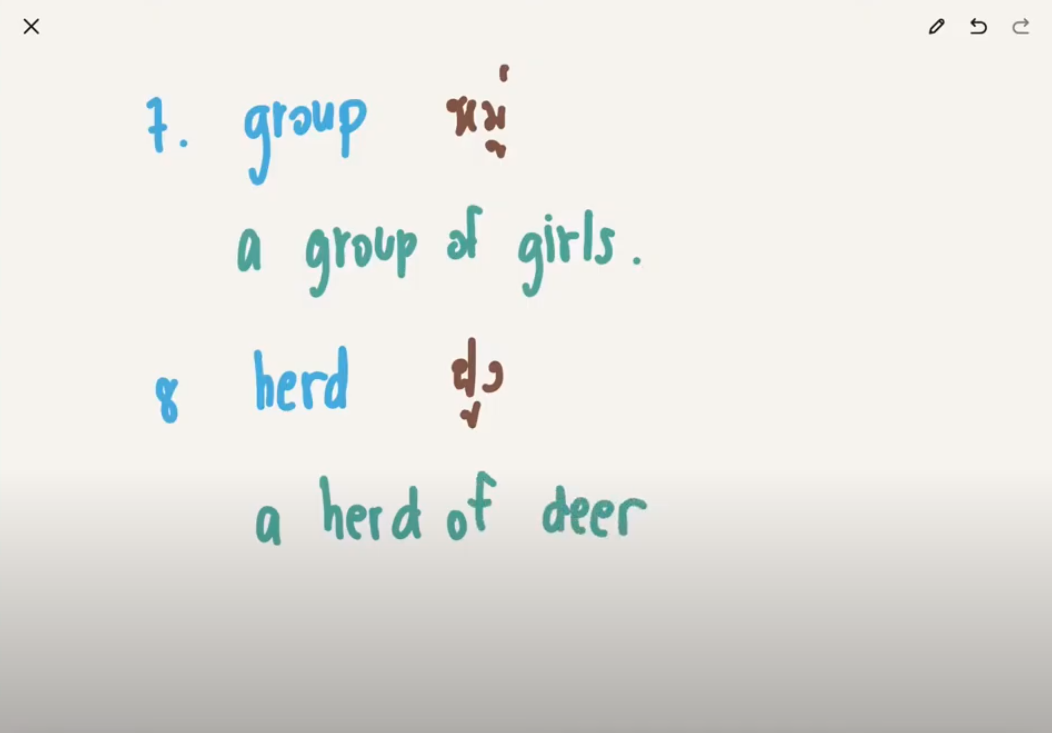 7. group หมู่
a group of girls.
8 herd ฝูง
a herd of deer